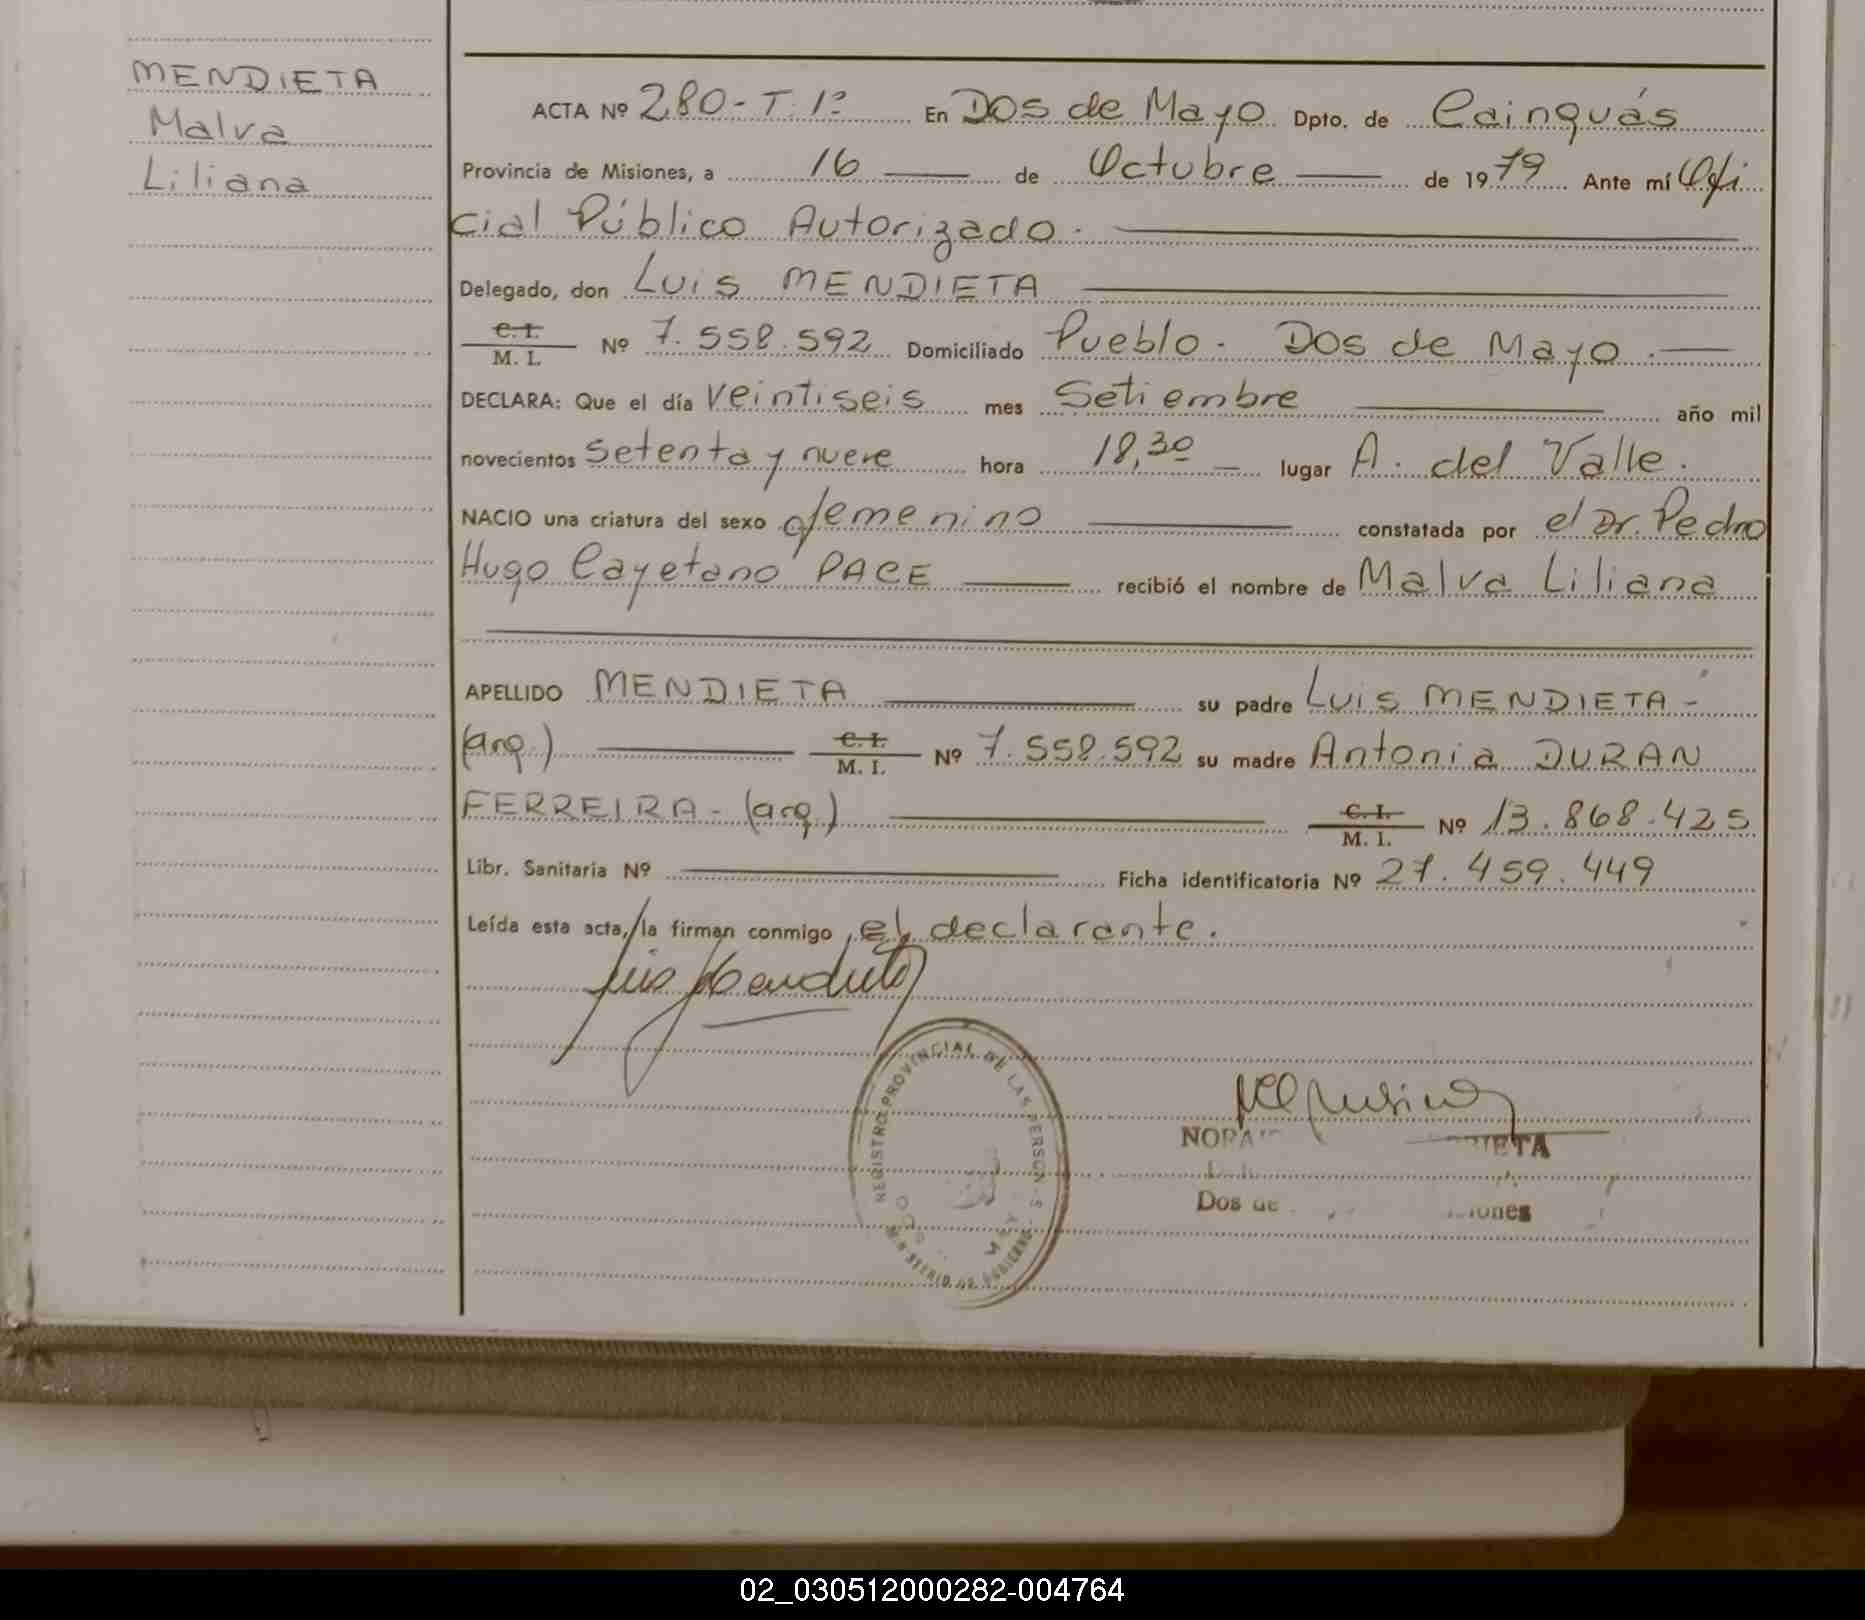 MENDIETA
Malva
Liliana
ACTA Nº 280-T.1º En Dos de Mayo Dpto. de Cainguás
Provincia de Misiones, a 16 de Octubre de 1979 Ante mí Ofi
cial Público Autorizado.
Delegado, don Luis MENDIETA
C. I.
M. I. Nº 7.558.592 Domiciliado Pueblo. Dos de Mayo.
DECLARA: Que el día veintiseis mes Setiembre año mil
novecientos setenta y nueve hora 18,30 lugar A. del Valle.
NACIO una criatura del sexo femenino constatada por el Dr. Pedro
Hugo Cayetano PACE recibió el nombre de Malva Liliana
APELLIDO MENDIETA su padre Luis MENDIETA-
(arg.) C. I. M. I. Nº 7.558.592 su madre Antonia DURAN
FERREIRA-(arg.) C. I. M. I. Nº 13.868.425
Libr. Sanitaria Nº Ficha identificatoria Nº 27.459.449
Leída esta acta, la firman conmigo, el declarante.
Luis Mendieta
REGISTRO PROVINCIAL DE LAS PERSONAS
MINISTERIO DE GOBIERNO
Dos de
02_030512000282-004764